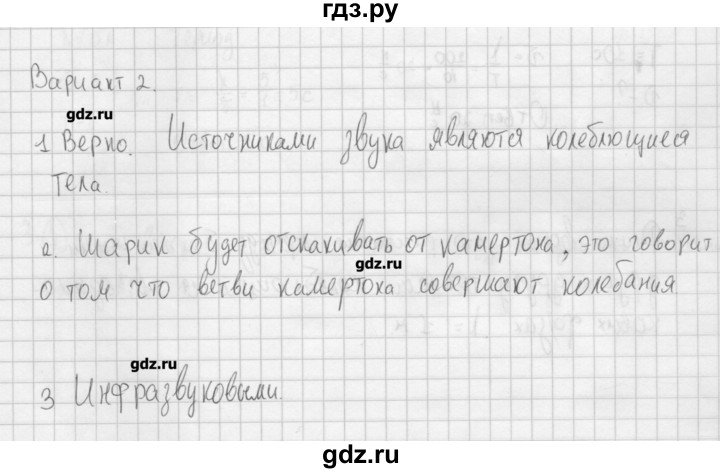 гдз.ру
Вариант 2.
gdz.ru
1 Верно. Источниками звука являются колеблющиеся
тела.
2. Шарик будет отскакивать от камертона, это говорит
gdz.ru
о том что ветви камертона совершают колебания
gdz.ru
3 Инфразвуковыми.
gdz.ru